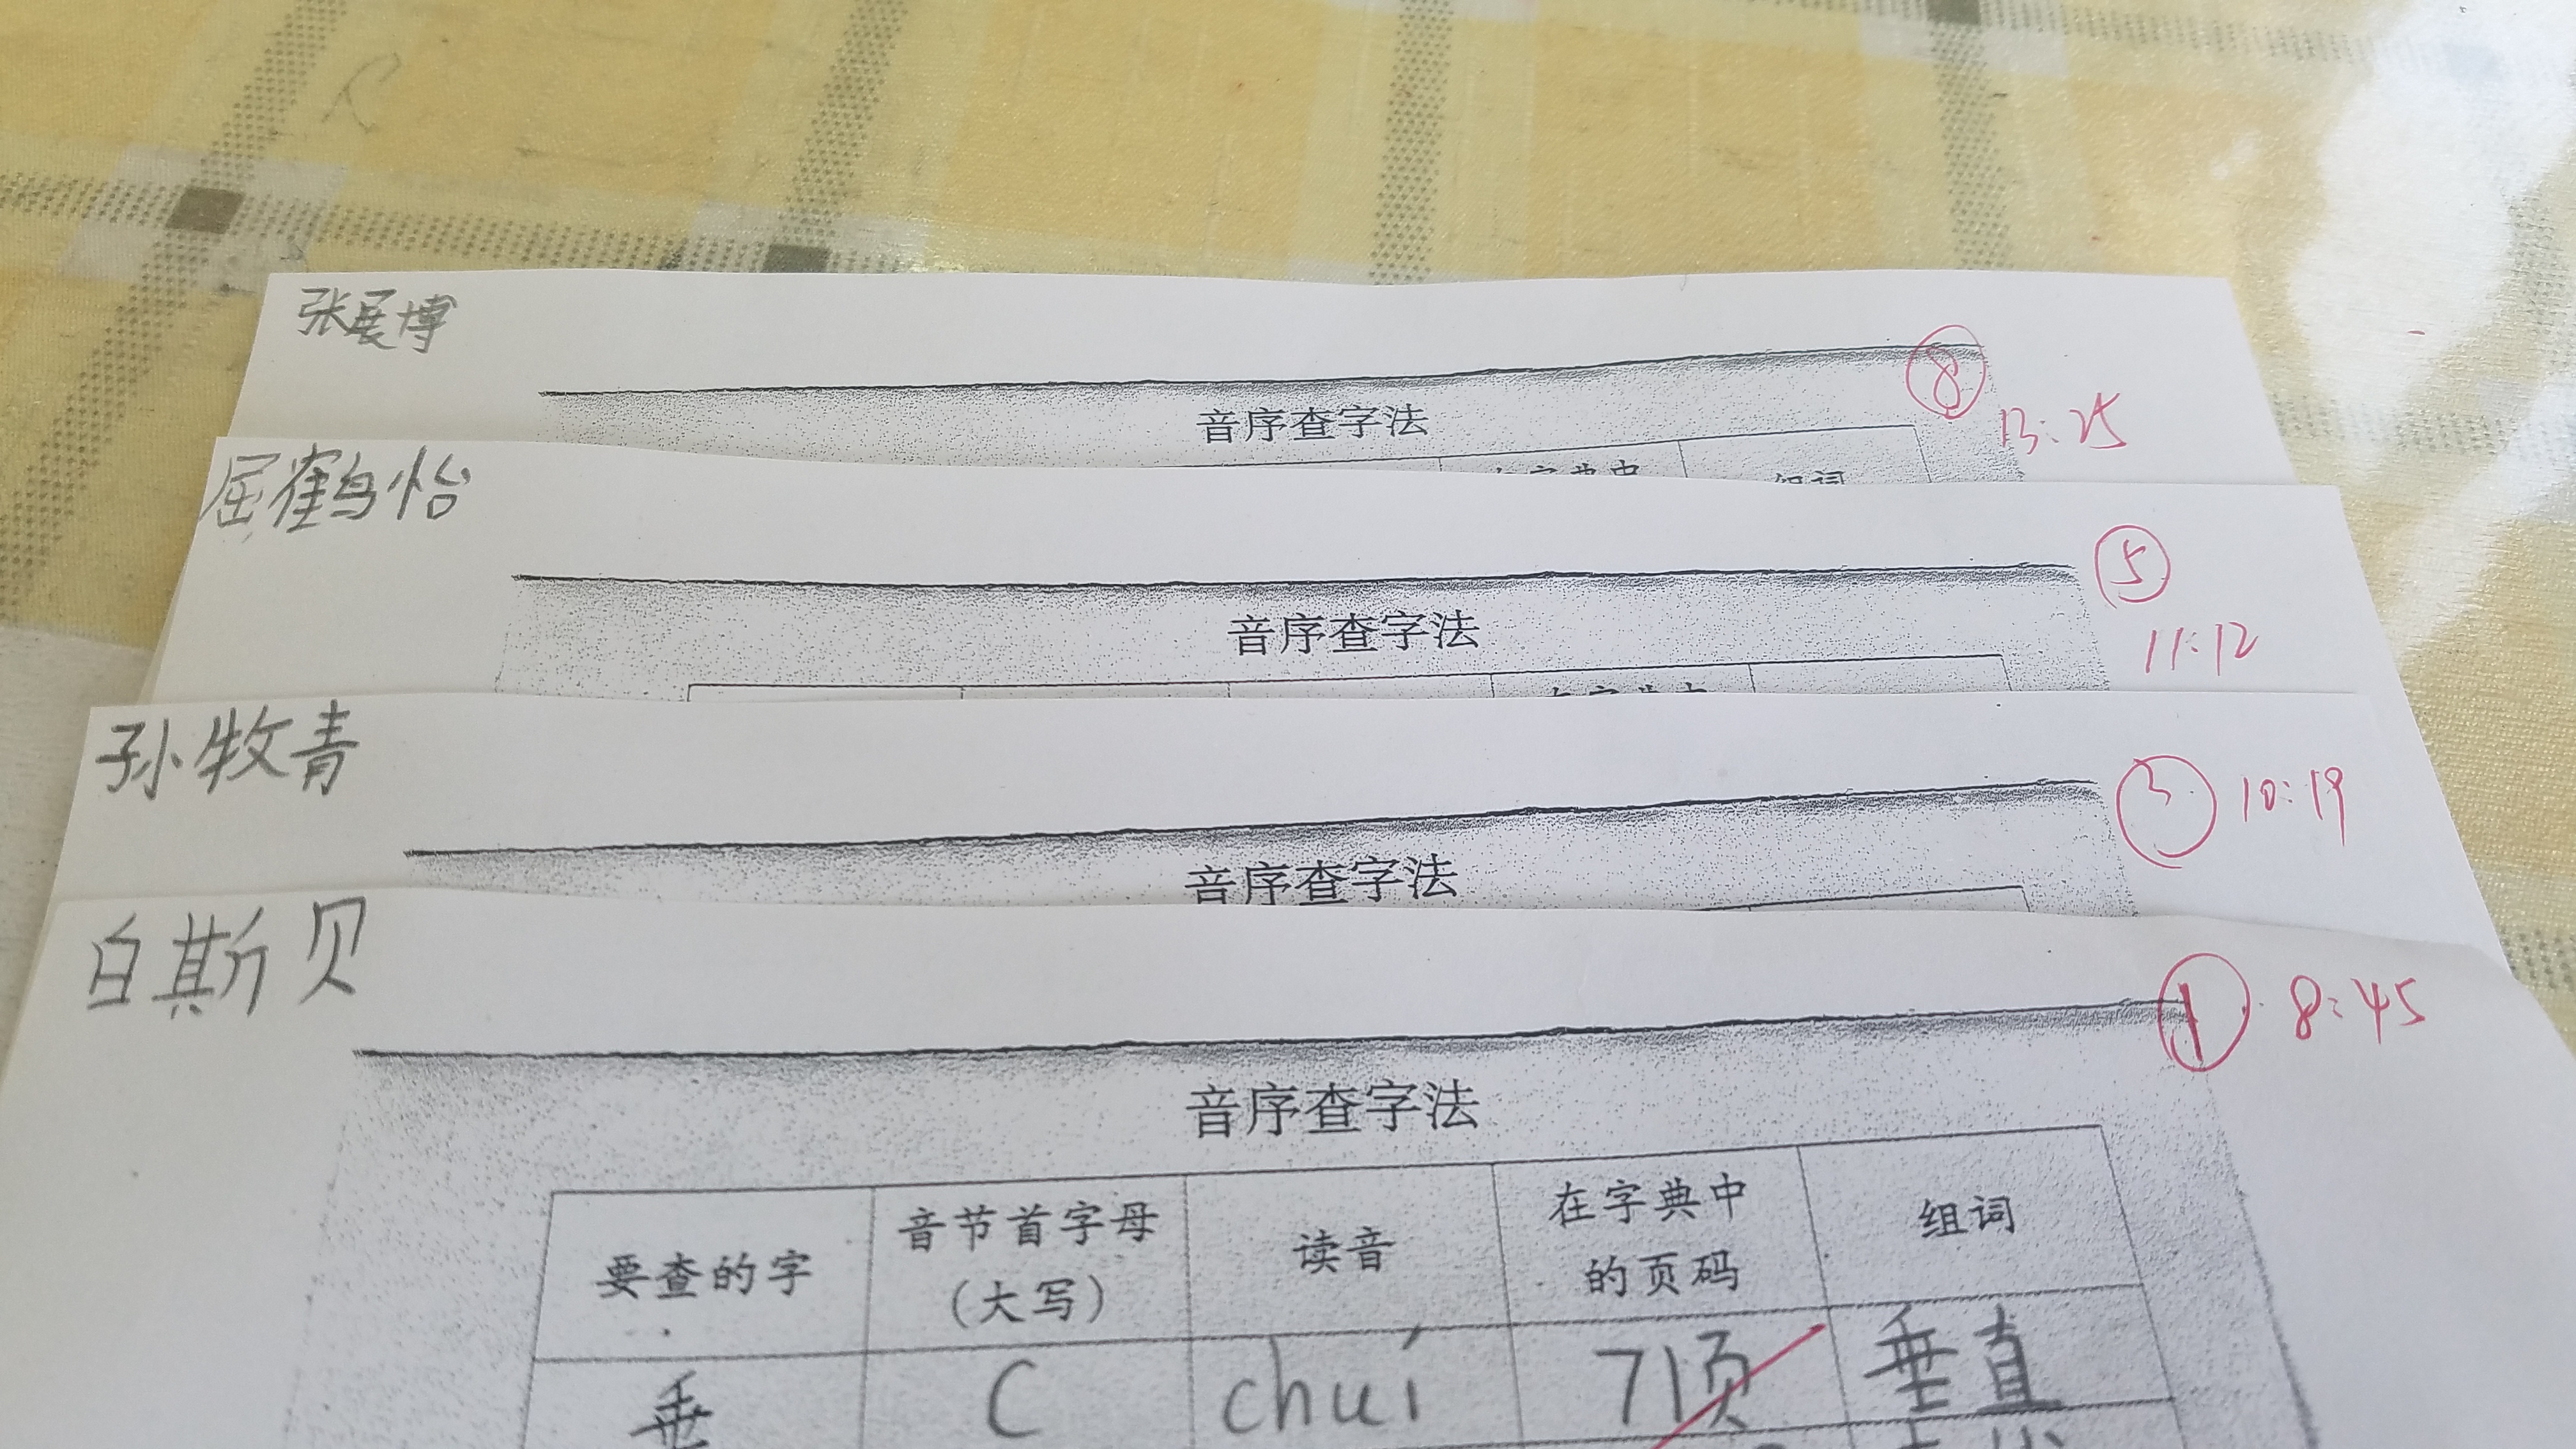 张展博
⑧
13:25
音序查字法
在字典中
组词
屈鹤怡
⑤
11:12
音序查字法
在字典中
孙牧青
③ 10:19
音序查字法
白斯贝
① 8:45
音序查字法
要查的字
音节首字母
(大写)
读音
在字典中
的页码
组词
垂 C chuí 71页 垂直